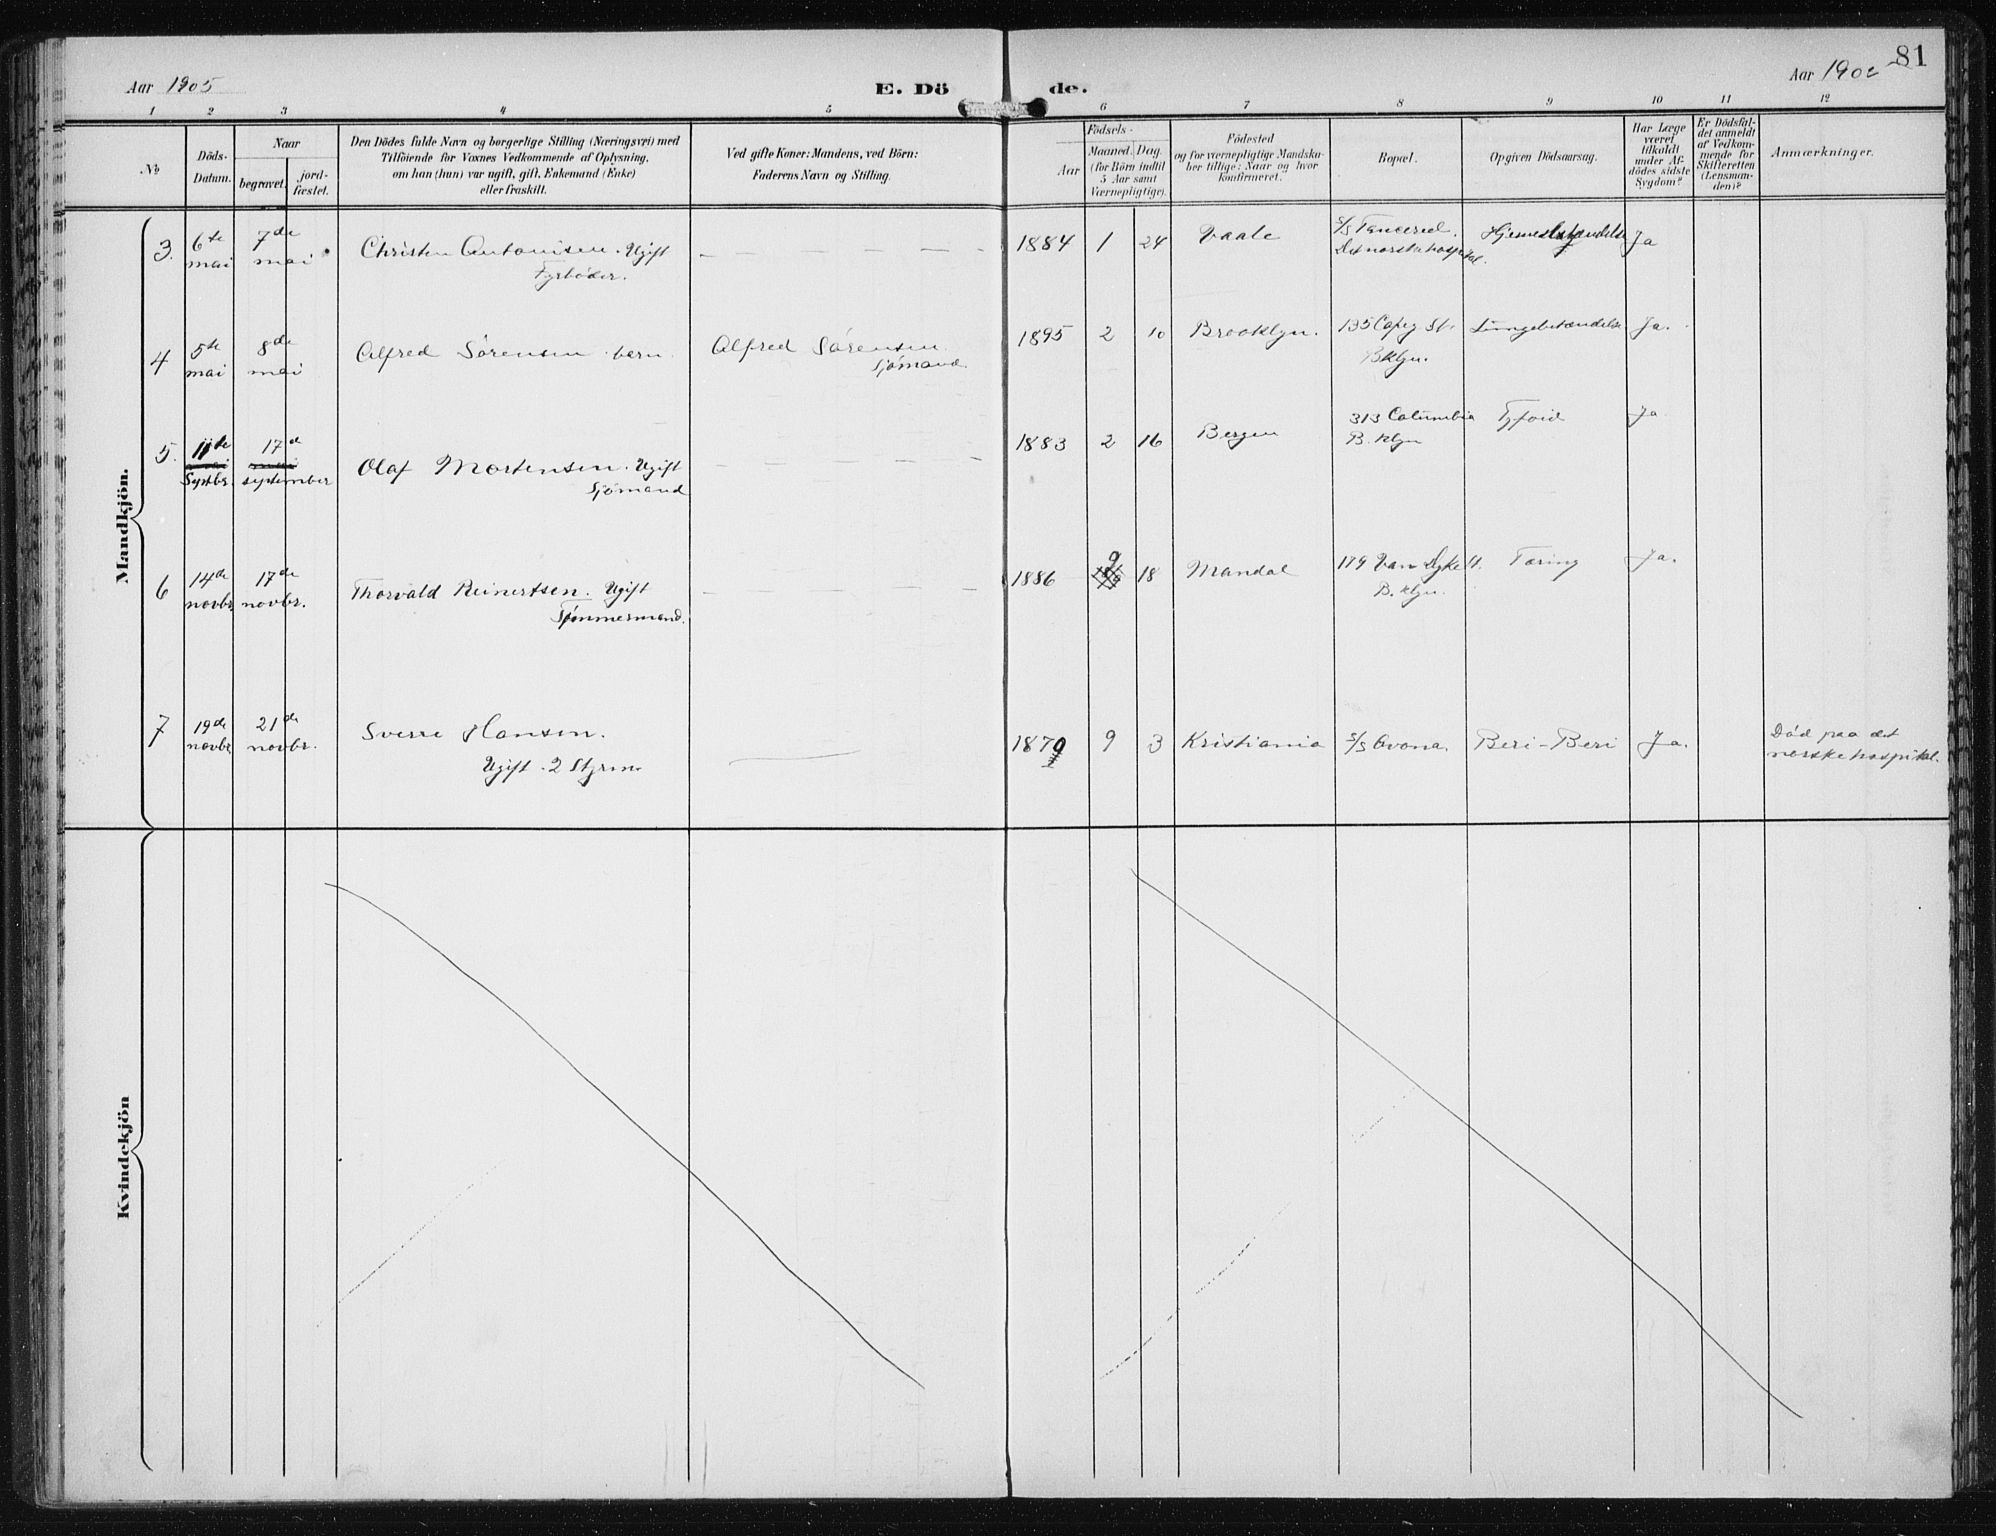 81
Aar 1905
E. Dö de.
Aar 190
1 2 3 4 5 6 7 8 9 10 11 12
No
Döds-
Datum.
Naar
begravet.
jord-
fæstet.
Den Dödes fulde Navn og borgerlige Stilling (Næringsvei) med
Tilföiende for Voxnes Vedkommende af Oplysning,
om han (hun) var ugift, gift, Enkemand (Enke)
eller fraskilt.
Ved gifte Koner: Mandens, ved Börn:
Faderens Navn og Stilling.
Födsels-
Aar
Maaned.
Dag.
(for Börn indtil
5 Aar samt
Værnepligtige).
Födested
og for værnepligtige Mandska-
ber tillige: Naar og hvor
konfirmeret.
Bopæl.
Opgiven Dödsaarsag.
Har Læge
været
tilkaldt
under Af-
dödes sidste
Sygdom?
Er Dödsfal-
det anmeldt
af Vedkom-
mende for
Skifteretten
(Lensman-
den)?
Anmærkninger.
Mandkjön.
3. 6te mai 7de mai Christen Antonisen. Ugift
Fyrböder.
1884 1 24 Vaale S/S Tancred.
Det norske hospital.
Ja
4 5te mai 8de mai Alfred Sørensen barn. Alfred Sørensen
Sjömand.
1895 2 10 Brooklyn. 135 St.
Bklyn.
Lungebetændelse Ja.
5. 11te mai
Septbr. 17d mai
september Olaf Mortensen. Ugift
Sjömand
1883 2 16 Bergen 313 Columbia
B.klyn
Tyfoid Ja
6 14de novbr. 17de novbr. Thorvald Reinertsen. Ugift
Tömmermand.
1886 9 18 Mandal 179 Van Dyke St.
B.klyn.
Tæring Ja.
7 19de novbr. 21de novbr. Sverre Hansen.
Ugift. 2 Styrm.
1879 9 3 Kristiania S/S Beri-Beri Ja.
Död paa det
norske hospital.
Kvindekjön